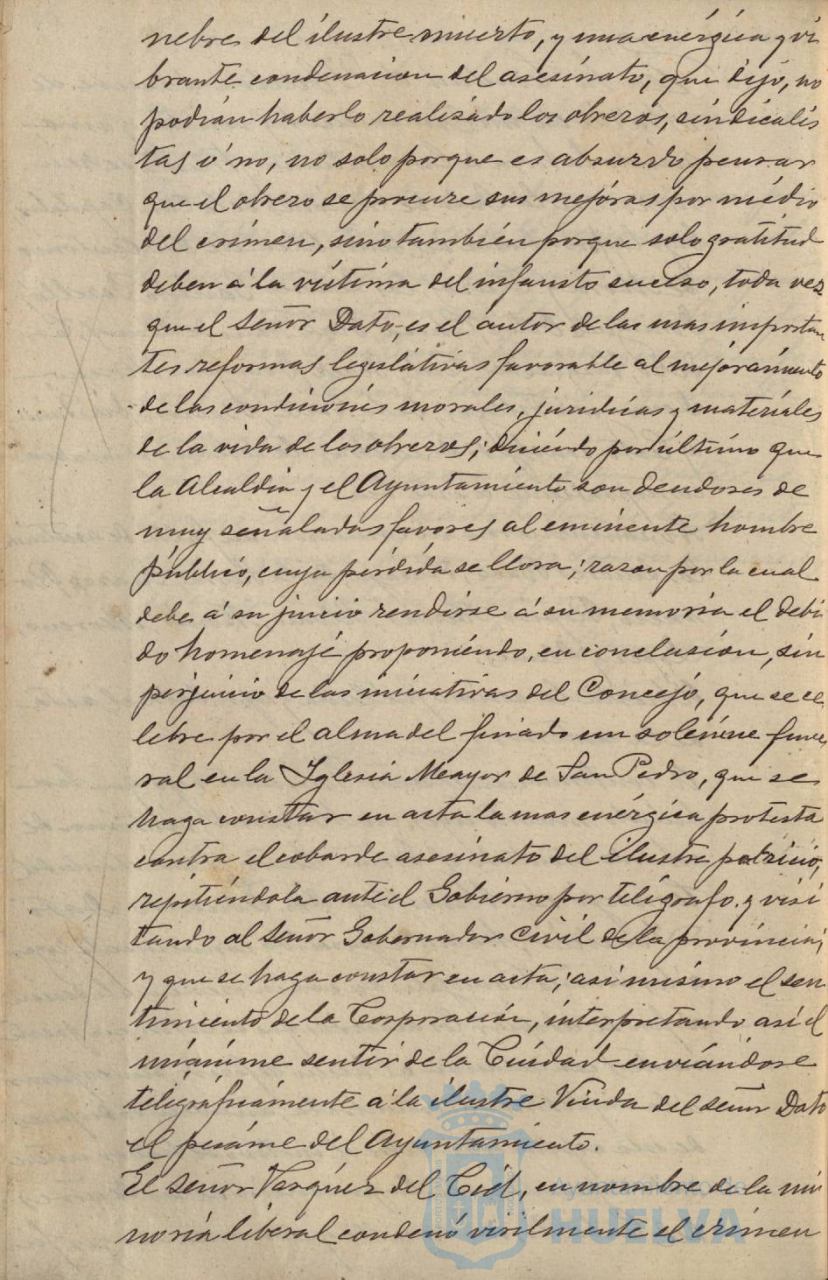 nebres del ilustre muerto, y una enérgica y vi
brante condenacion del asesinato, que dijo, no
podrian haberlo realizado los obreros, sindicalis
tas ó no, no solo porque es absurdo pensar
que el obrero se procure sus mejóras por médio
del crimen, sino también porque solo gratitud
deben á la victima del infausto suceso, toda vez
que el Señor Dato, es el autor de las mas importan
tes reformas legislativas favorable al mejoramiento
de las condiciones morales, juridicas y materiales
de la vida de los obreros; diciéndo por último que
la Alcaldia y el Ayuntamiento son deudores de
muy señalados favores al eminente hombre
público, cuya pérdida se llora; razon por la cual
debe á su juicio rendirse á su memoria el debi
do homenajé proponiendo, en conclusión, sin
perjuicio de las iniciativas del Concejo, que se ce
lebre por el alma del finado un solémne fune
ral en la Iglesia Meayor de San Pedro, que se
haga constar en acta la mas enérgica protesta
contra el cobarde asesinato del ilustre patricio,
repitiéndola ante el Gobierno por telégrafo y visi
tando al Señor Gobernador Civil de la provincia;
y que se haga constar en acta; asi mismo el sen
timiento de la Corporación, interpretando asi el
unánime sentir de la Ciudad enviándose
telégráficamente á la ilustre Viuda del señor Dato
el pesáme del Ayuntamiento.
El señor Vazquez del Cid, en nombre de la mi
noria liberal condenó virilmente el crimen
HUELVA